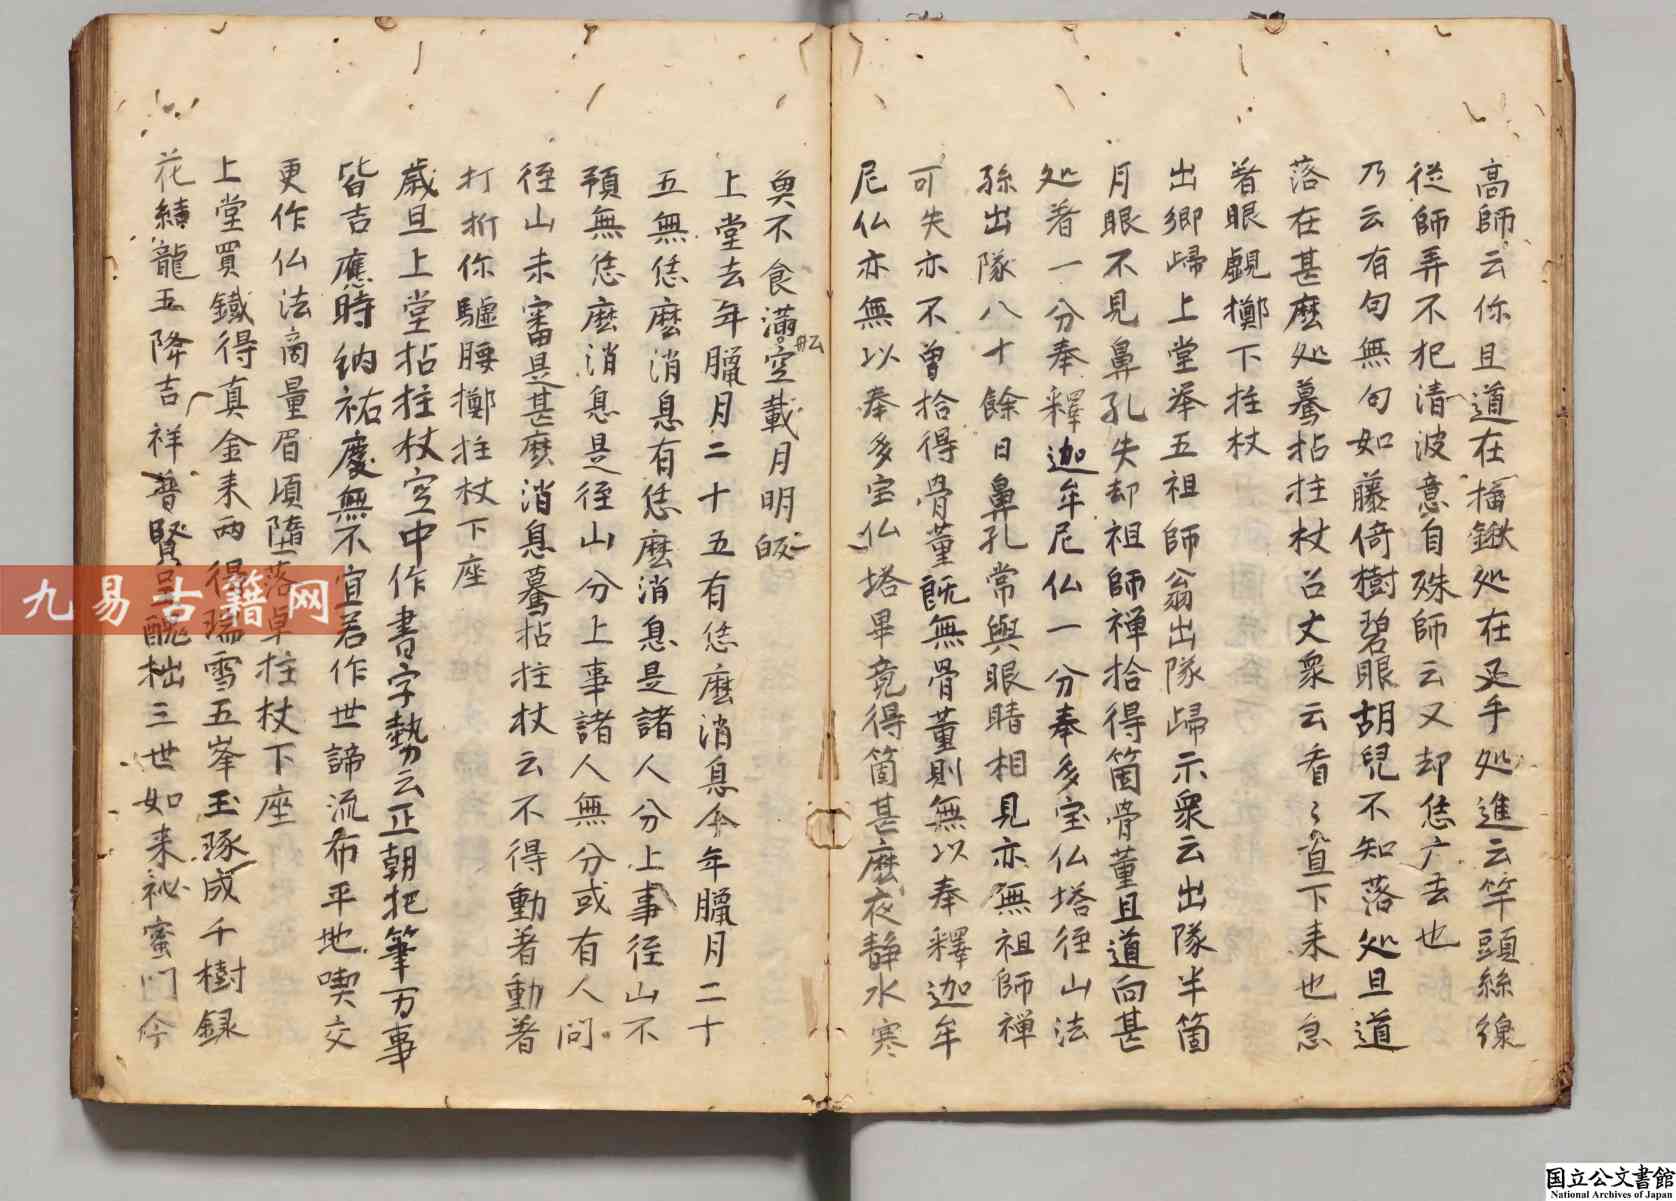 高師云你且道在插鍬処在叉手処進云竿頭絲線
從師弄不犯清波意自殊師云又却恁广去也
乃云有句無句如藤倚樹碧眼胡兒不知落処且道
落在甚麼処驀拈拄杖召大衆云看〻直下来也急
着眼覷擲下拄杖
出鄉歸上堂举五祖師翁出隊歸示衆云出隊半箇
月眼不見鼻孔失却祖師禅拾得箇骨董且道向甚
処着一分奉釋迦牟尼仏一分奉多宝仏塔径山法
孫出隊八十餘日鼻孔常與眼睛相見亦無祖師禅
可失亦不曽拾得骨董既無骨董則無以奉釋迦牟
尼仏亦無以奉多宝仏塔畢竟得箇甚麼夜静水寒
魚不食滿舡空載月明皈
上堂去年臘月二十五有恁麼消息今年臘月二十
五無恁麼消息有恁麼消息是諸人分上事径山不
預無恁麼消息是径山分上事諸人無分或有人問
径山未審是甚麼消息驀拈拄杖云不得動著動著
打折你驢腰擲拄杖下座
歲旦上堂拈拄杖空中作書字勢云正朝把筆万事
皆吉應時納祐慶無不宜若作世諦流布平地喫交
更作仏法商量眉湏墮落卓拄杖下座
上堂買鐵得真金来兩得瑞雪五峯玉琢成千樹録
花績龍五降吉祥普賢呈醜拙三世如来祕蜜門今
九易古籍网
国立公文書館
National Archives of Japan